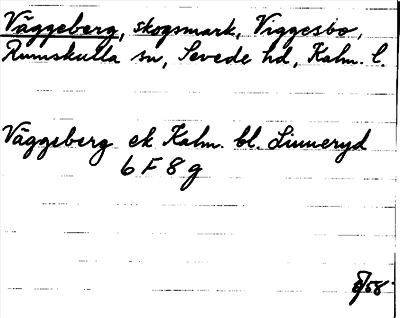 Väggeberg, skogsmark, Viggesbo,
Rumskulla sn, Sevede hd, Kalm. l.
Väggeberg ek Kalm. bl. Linneryd
6 F 8 g
58